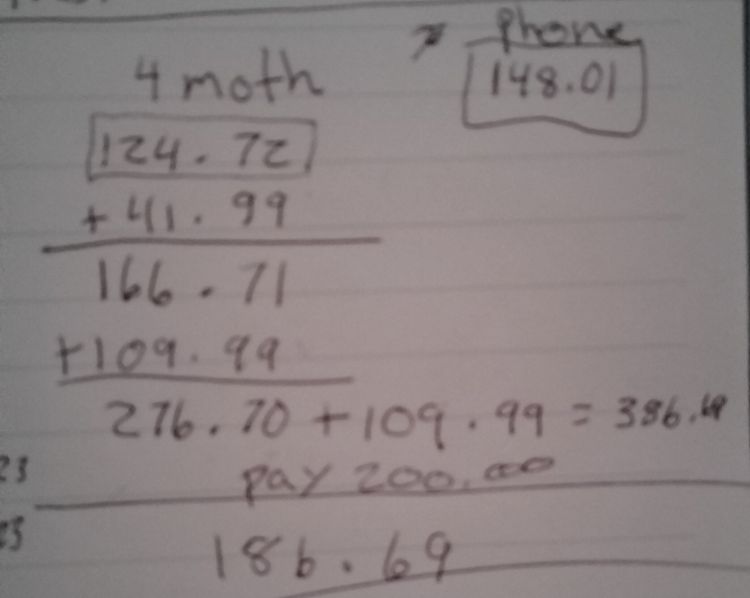 Phone
148.01
4 moth
124.72
+41.99
166.71
+109.99
276.70+109.99=386.69
23
pay 200.00
186.69